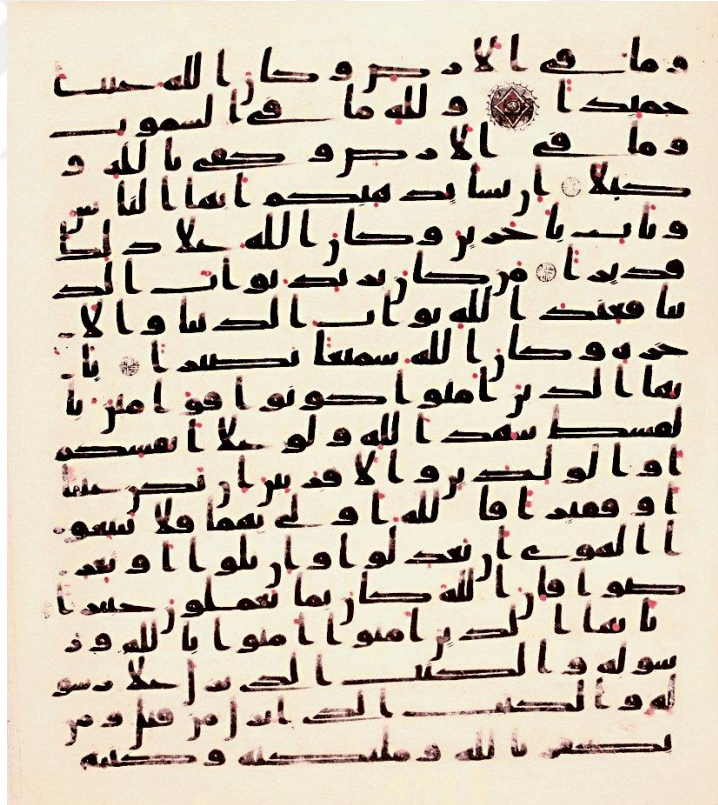 وما في الارض وكان الله غنيا
حميدا ولله ما في السموت
وما في الارض وكفى بالله و
كيلا ان يشا يذهبكم ايها الناس
ويات باخرين وكان الله على ذلك
قديرا من كان يريد ثواب الد
نيا فعند الله ثواب الدنيا والا
خره وكان الله سميعا بصيرا يا
يها الذين امنوا كونوا قوامين با
لقسط شهدا لله ولو على انفسكم
او الولدين والاقربين ان يكن غنيا
او فقيرا فالله اولى بهما فلا تتبعو
ا الهوى ان تعدلوا وان تلوا او تعر
ضوا فان الله كان بما تعملون خبيرا
يايها الذين امنوا امنوا بالله ور
سوله والكتب الذي نزل على رسو
له والكتب الذي انزل من قبل ومن
يكفر بالله وملئكته وكتبه